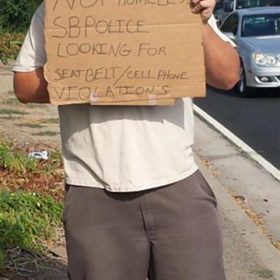 NOT HOMELESS
SBPOLICE
LOOKING FOR
SEAT BELT/CELL PHONE
VIOLATIONS